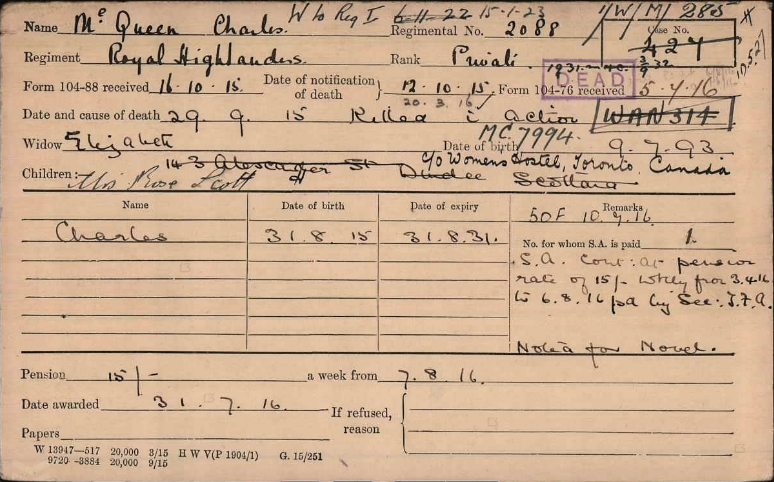 W to Reg I 6-11-22 15-1-23 1/W/M/285
Name Mc Queen Charles. Regimental No. 2088 Case No. 1/427
Regiment Royal Highlanders. Rank Private. 10.5.27
DEAD
Form 104-88 received 16.10.15. Date of notification of death } 12.10.15. Form 104-76 received 5-7-16
20.3.16
Date and cause of death 29.9.15 Killed i Action WAN 314
MC 7994
Widow Elizabeth Date of birth 9.7.93
143 Alexander St c/o Womens Hostel, Toronto, Canada
Children: Mrs Rose Scott Dundee Scotland
Name Date of birth Date of expiry Remarks
50F 10.7.16.
Charles 31.8.15 31.8.31. No. for whom S.A. is paid 1.
S.A. cont: at pension
rate of 15/- wkly from 3.4.16
to 6.8.16 pd by Sec: T.F.A.
Noted for Novel.
Pension 15/- a week from 7.8.16.
Date awarded 31.7.16. If refused, reason
Papers
W 13947—517 20,000 3/15 H W V(P 1904/1) G. 15/251
9720—3884 20,000 9/15